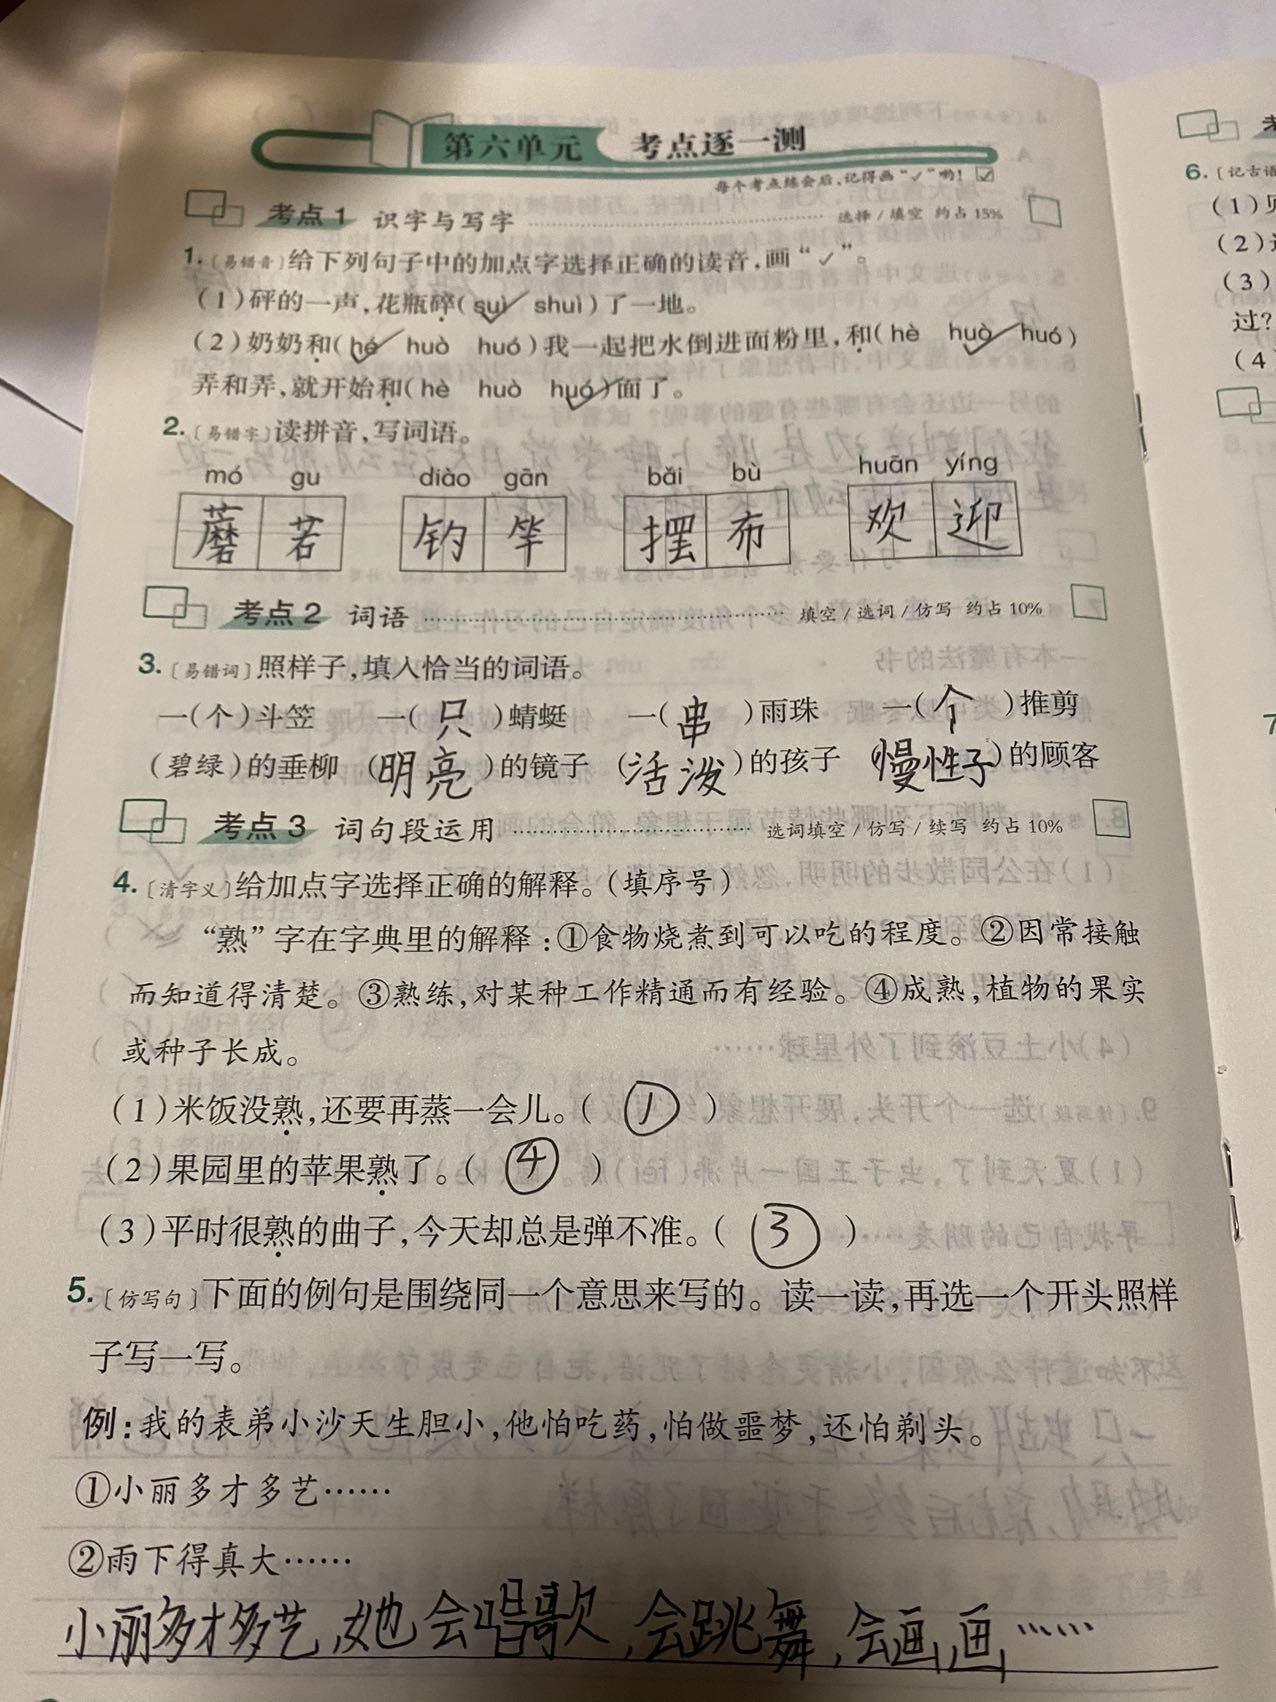 第六单元 考点逐一测
每个考点练会后,记得画“✓”哟!
考点1 识字与写字 选择/填空 约占15%
1.〔易错音〕给下列句子中的加点字选择正确的读音,画“✓”。
(1)砰的一声,花瓶碎(suì✓ shuì)了一地。
(2)奶奶和(hé✓ huò huó)我一起把水倒进面粉里,和(hè huò✓ huó)
弄和弄,就开始和(hè huò huó✓)面了。
2.〔易错字〕读拼音,写词语。
mó gu diào gān bǎi bù huān yíng
蘑 若 钓 竿 摆 布 欢 迎
考点2 词语 填空/选词/仿写 约占10%
3.〔易错词〕照样子,填入恰当的词语。
一(个)斗笠 一(只)蜻蜓 一(串)雨珠 一(个)推剪
(碧绿)的垂柳 (明亮)的镜子 (活泼)的孩子 (慢性子)的顾客
考点3 词句段运用 选词填空/仿写/续写 约占10%
4.〔清字义〕给加点字选择正确的解释。(填序号)
“熟”字在字典里的解释:①食物烧煮到可以吃的程度。②因常接触
而知道得清楚。③熟练,对某种工作精通而有经验。④成熟,植物的果实
或种子长成。
(1)米饭没熟,还要再蒸一会儿。(①)
(2)果园里的苹果熟了。(④)
(3)平时很熟的曲子,今天却总是弹不准。(③)
5.〔仿写句〕下面的例句是围绕同一个意思来写的。读一读,再选一个开头照样
子写一写。
例:我的表弟小沙天生胆小,他怕吃药,怕做噩梦,还怕剃头。
①小丽多才多艺……
②雨下得真大……
小丽多才多艺,她会唱歌,会跳舞,会画画……
6.〔记古诗
(1)
(2)
(3)
过?
(4)
7